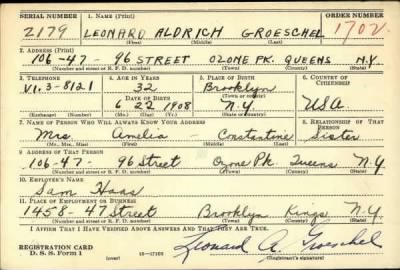 SERIAL NUMBER 1. NAME (Print) ORDER NUMBER
2179 LEONARD ALDRICH GROESCHEL 1702
(First) (Middle) (Last)
2. ADDRESS (Print)
106-47- 96 STREET OZONE PK. QUEENS N.Y
(Number and street or R. F. D. number) (Town) (County) (State)
3. TELEPHONE 4. AGE IN YEARS 5. PLACE OF BIRTH 6. COUNTRY OF CITIZENSHIP
VI. 3-8121 32 Brooklyn
DATE OF BIRTH (Town or county)
6 22 1908 N.Y USA
(Exchange) (Number) (Mo.) (Day) (Yr.) (State or country)
7. NAME OF PERSON WHO WILL ALWAYS KNOW YOUR ADDRESS 8. RELATIONSHIP OF THAT PERSON
Mrs. Amelia - Constantine Sister
(Mr., Mrs., Miss) (First) (Middle) (Last)
9. ADDRESS OF THAT PERSON
106-47- 96 Street Ozone Pk Queens N.Y
(Number and street or R. F. D. number) (Town) (County) (State)
10. EMPLOYER'S NAME
Sam Haas
11. PLACE OF EMPLOYMENT OR BUSINESS
1458-47 Street Brooklyn Kings N.Y.
(Number and street or R. F. D. number) (Town) (County) (State)
I AFFIRM THAT I HAVE VERIFIED ABOVE ANSWERS AND THAT THEY ARE TRUE.
REGISTRATION CARD
D. S. S. FORM 1 (over) Leonard A. Groeschel
(Registrant's signature)